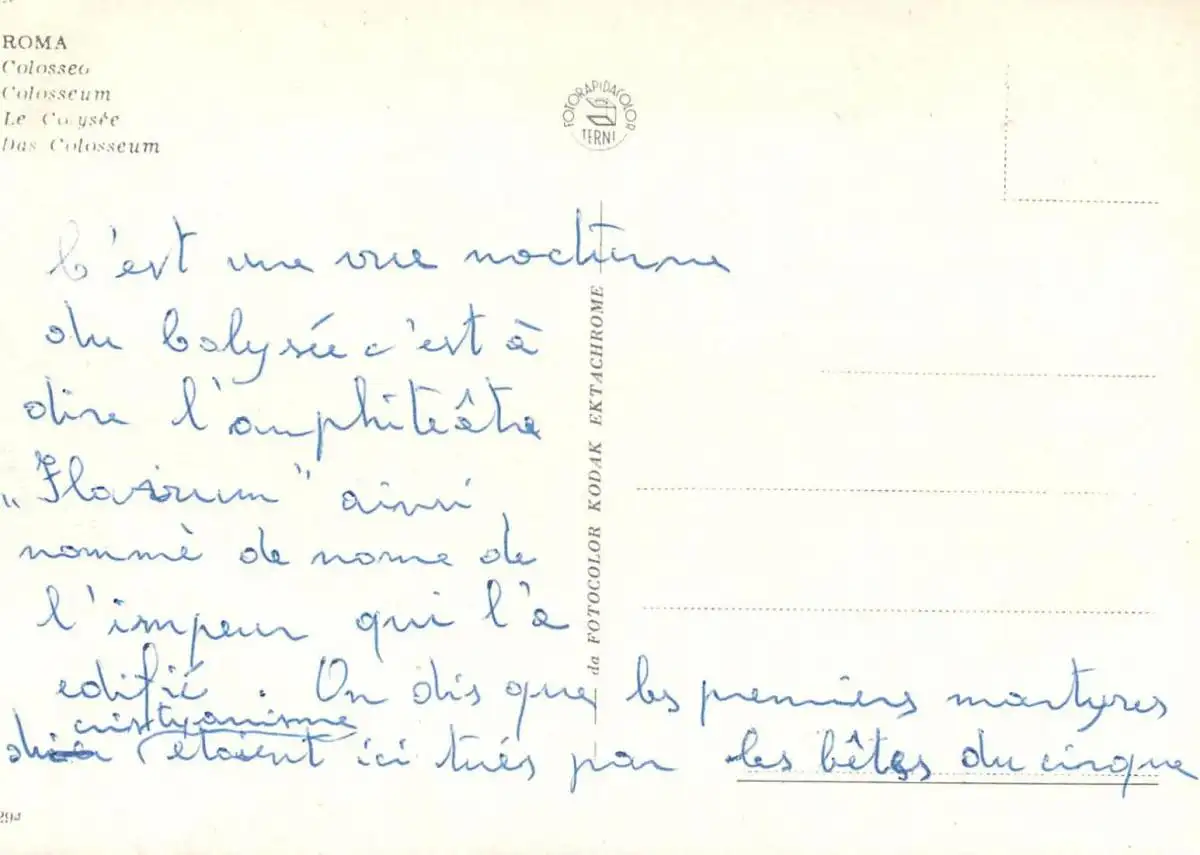 ROMA
Colosseo
Colosseum
Le Colysée
Das Colosseum
FOTORAPIDACOLOR
TERNI
C'est une vue nocturne
du Colysée c'est à
dire l'amphiteâtre
„Flavium" ainsi
nommè de nome de
l'impeur qui l'a
edifié. On dis que les premiers martyres
cristyanisme
du etaient ici tués par les bêtes du cirque
da FOTOCOLOR KODAK EKTACHROME